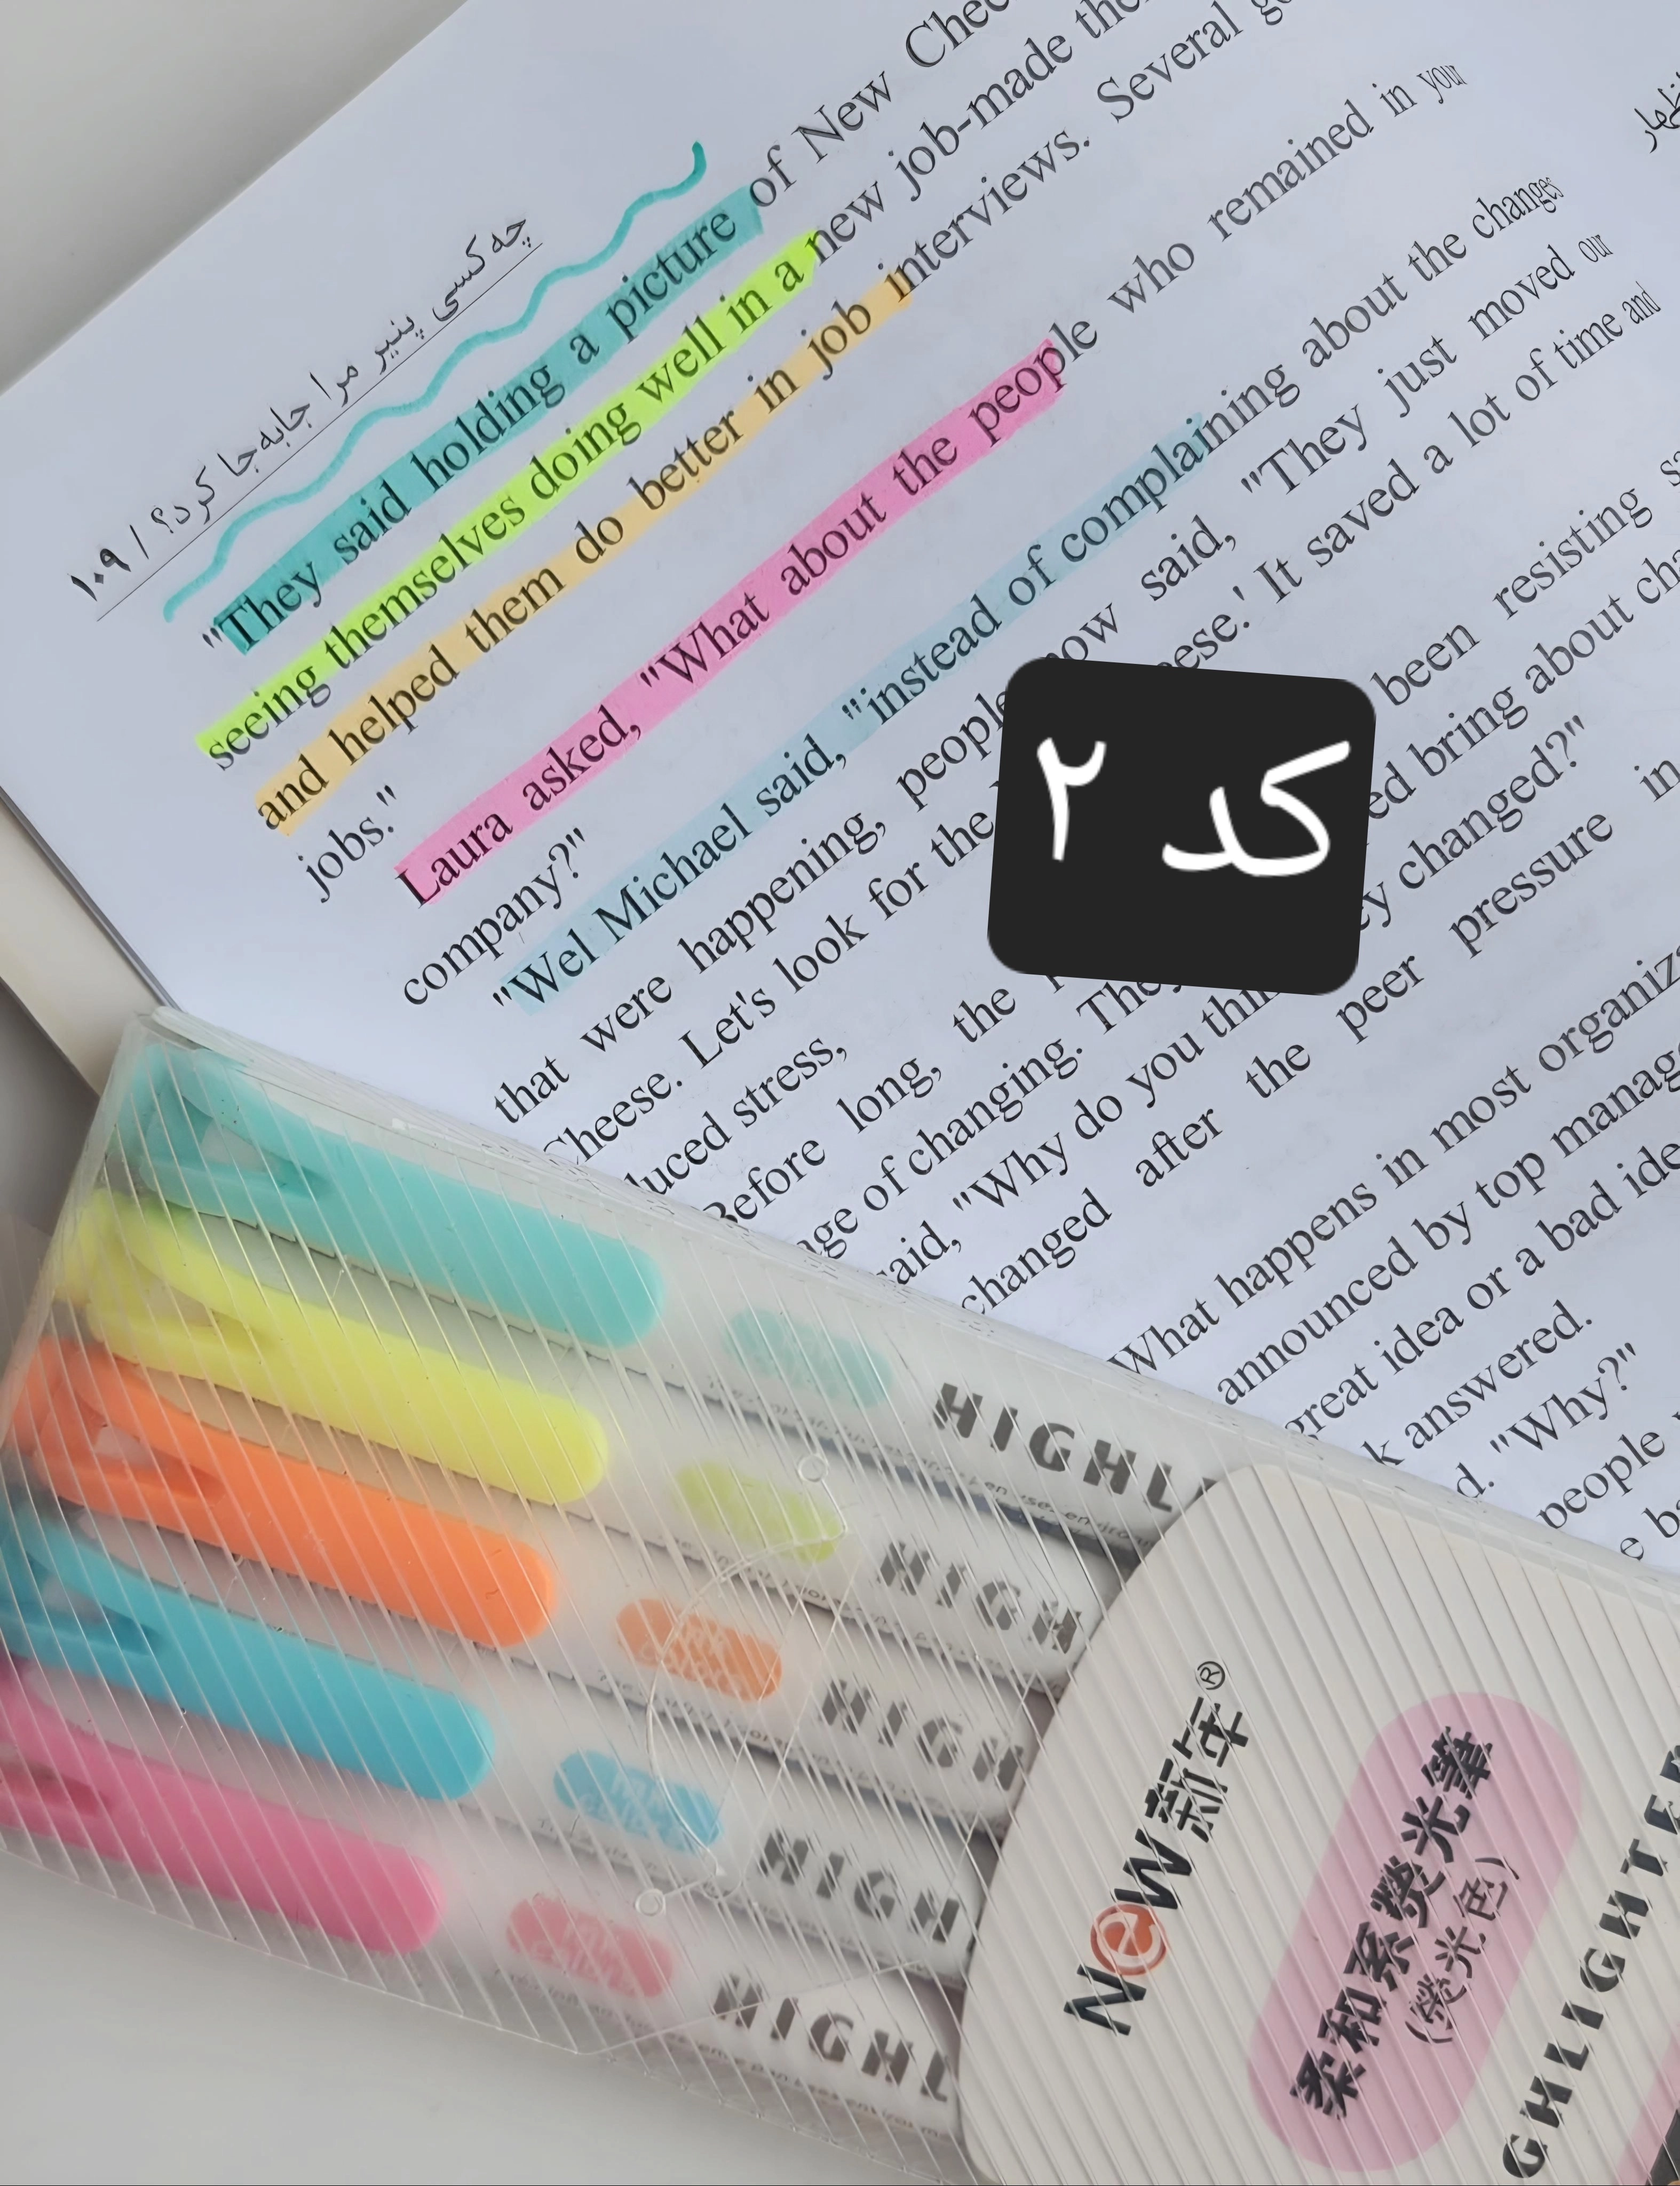 چه کسی پنیر مرا جابه‌جا کرد؟ / ۱۰۹
"They said holding a picture of New
seeing themselves doing well in a new job-made
and helped them do better in job interviews. Several
jobs."
Laura asked, "What about the people who remained in your
company?"
"Wel Michael said, "instead of complaining about the changes
that were happening, people now said, "They just moved our
Cheese. Let's look for the It saved a lot of time and
stress,
Before long, the been resisting
of changing. bring about
"Why do you changed?"
changed after the peer pressure in
What happens in most
announced by top
great idea or a bad
answered.
"Why?"
people
کد ۲
HIGH
HIGH
HIGH
NeW 新年®
柔和系熒光筆
(熒光色)